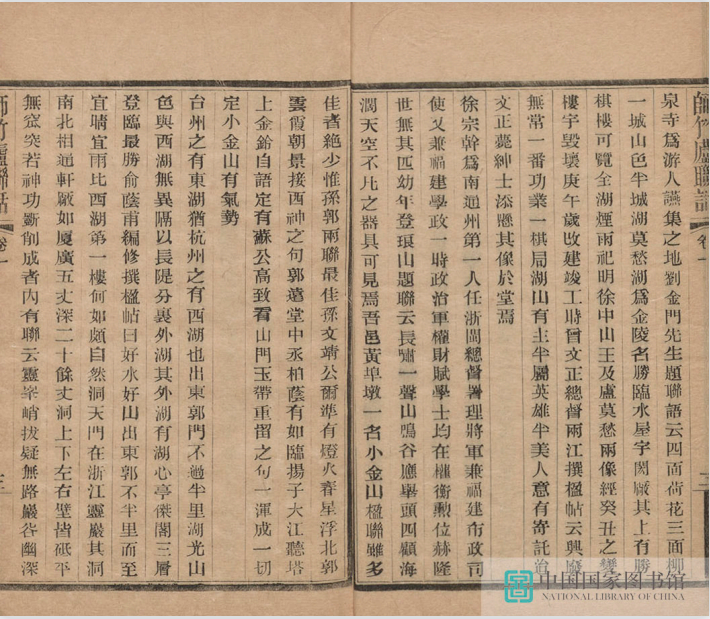 師竹廬聯話 卷一
泉寺爲游人讌集之地劉金門先生題聯語云四面荷花三面柳
一城山色半城湖莫愁湖爲金陵名勝臨水屋宇閎厰其上有勝
棋樓可覽全湖煙雨祀明徐中山王及盧莫愁兩像經癸丑之變
樓宇毀壞庚午歲改建竣工時曾文正總督兩江撰楹帖云興廢
無常一番功業一棋局湖山有主半屬英雄半美人意有寄託治
文正薨紳士添懸其像於堂焉
徐宗幹爲南通州第一人任浙閩總督署理將軍兼福建布政司
使又兼福建學政一時政治軍權財賦學士均在權衡勲位赫隆
世無其匹幼年登琅山題聯云長嘯一聲山鳴谷應舉頭四顧海
濶天空不凡之器具可見焉吾邑黃埠墩一名小金山楹聯雖多
佳者絶少惟孫郭兩聯最佳孫文靖公爾準有燈火春星浮北郭
雲霞朝景接西神之句郭遠堂中丞柏蔭有如臨揚子大江聽塔
上金鈴自語定有蘇公高致看山門玉帶重留之句一渾成一切
定小金山有氣勢
台州之有東湖猶杭州之有西湖也出東郭門不過半里湖光山
色與西湖無異隔以長隄分裏外湖其外湖有湖心亭傑閣三層
登臨最勝俞蔭甫編修撰楹帖曰好水好山出東郭不半里而至
宜晴宜雨比西湖第一樓何如頗自然洞天門在浙江靈巖其洞
南北相通軒厰如厦廣五丈深二十餘丈洞上下左右壁皆砥平
無窊突若神功斵削成者內有聯云靈峯峭拔疑無路巖谷幽深
師竹廬聯話 卷一 三
中国国家图书馆
NATIONAL LIBRARY OF CHINA